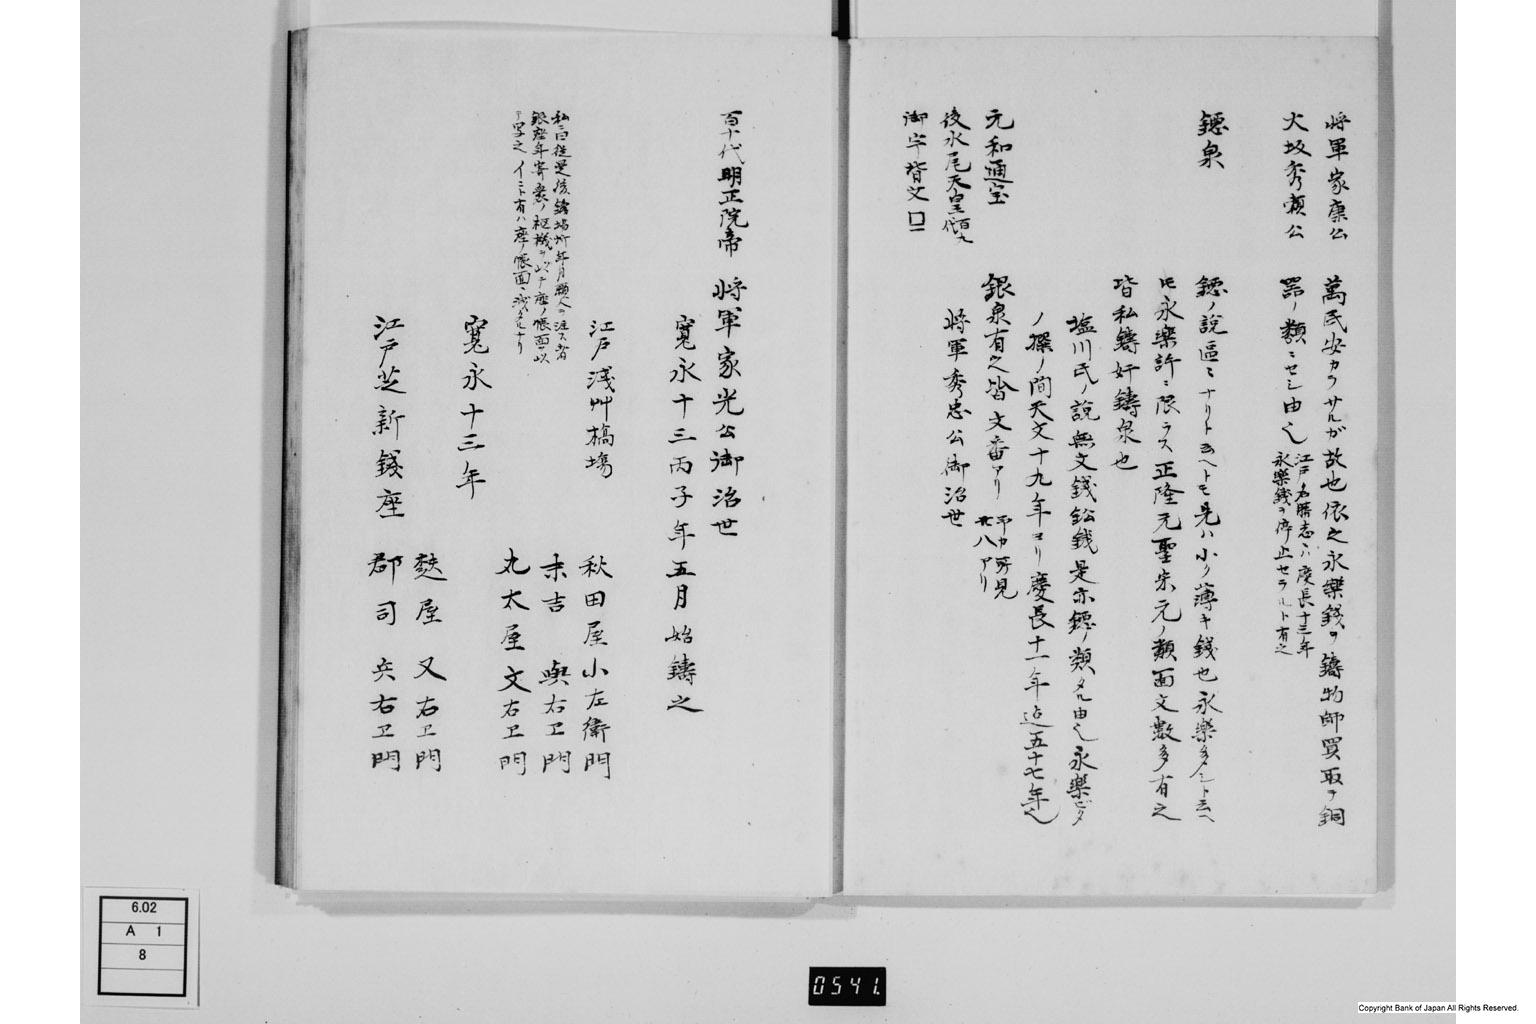 将軍家康公
大坂秀頼公
萬民安カラサルガ故也依之永樂銭ヲ鋳物師買取テ銅
器ノ類ニセシ由也
江戸名勝志ニハ慶長十三年
永樂銭ヲ停止セラルト有之
鐚泉
鐚ノ説區ニナリト云ヘトモ是ハ小ク薄キ銭也永樂多シト云ヘ
𪜈永樂許ニ限ラス正隆元聖宋元ノ類面文數多有之
皆私鋳奸鋳泉也
塩川氏ノ説無文銭鉛銭是亦鐚ノ類タル由也永樂ビタ
ノ撰ノ間天文十九年ヨリ慶長十一年迄五十七年也
元和通宝
銀泉有之皆文番アリ
後水尾天皇百九代
将軍秀忠公御治世
御宇背文
百十代明正院帝 将軍家光公御治世
寛永十三丙子年五月始鋳之
江戸浅艸橋場
秋田屋小左衛門
末吉 與右ヱ門
丸太屋文右ヱ門
私ニ曰從是後鋳場所年月願人ヲ注ス者
銀座年寄衆ノ枢機ヲ以テ座ノ帳面ヲ以
テ写之 イニト有ハ座ノ帳面ニ
寛永十三年
江戸芝新銭座
麩屋 又右ヱ門
郡司 兵右ヱ門
6.02
A 1
8
0541.
Copyright Bank of Japan All Rights Reserved.